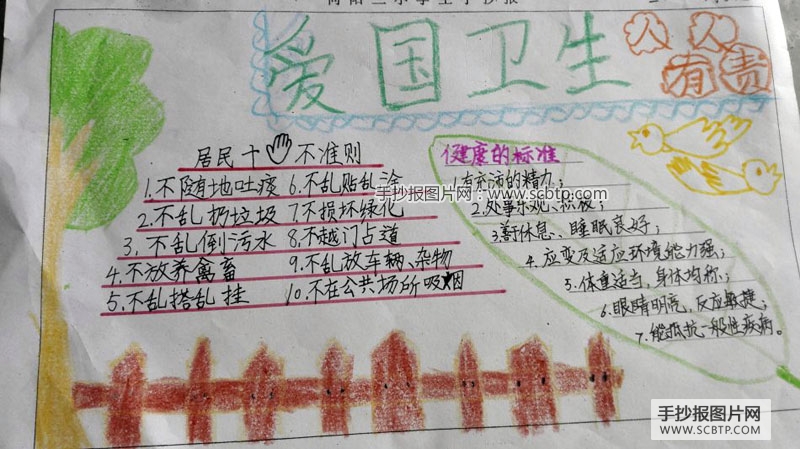 爱国卫生
人人
有责
居民十不准则
1.不随地吐痰 6.不乱贴乱涂
2.不乱扔垃圾 7.不损坏绿化
3.不乱倒污水 8.不越门占道
4.不放养禽畜 9.不乱放车辆、杂物
5.不乱搭乱挂 10.不在公共场所吸烟
健康的标准
1.有充沛的精力;
2.处事乐观、积极;
3.善休息、睡眠良好;
4.应变及适应环境能力强;
5.体重适当,身体均称;
6.眼睛明亮,反应敏捷;
7.能抵抗一般性疾病。
手抄报图片网:www.scbtp.com
手抄报图片网
WWW.SCBTP.COM